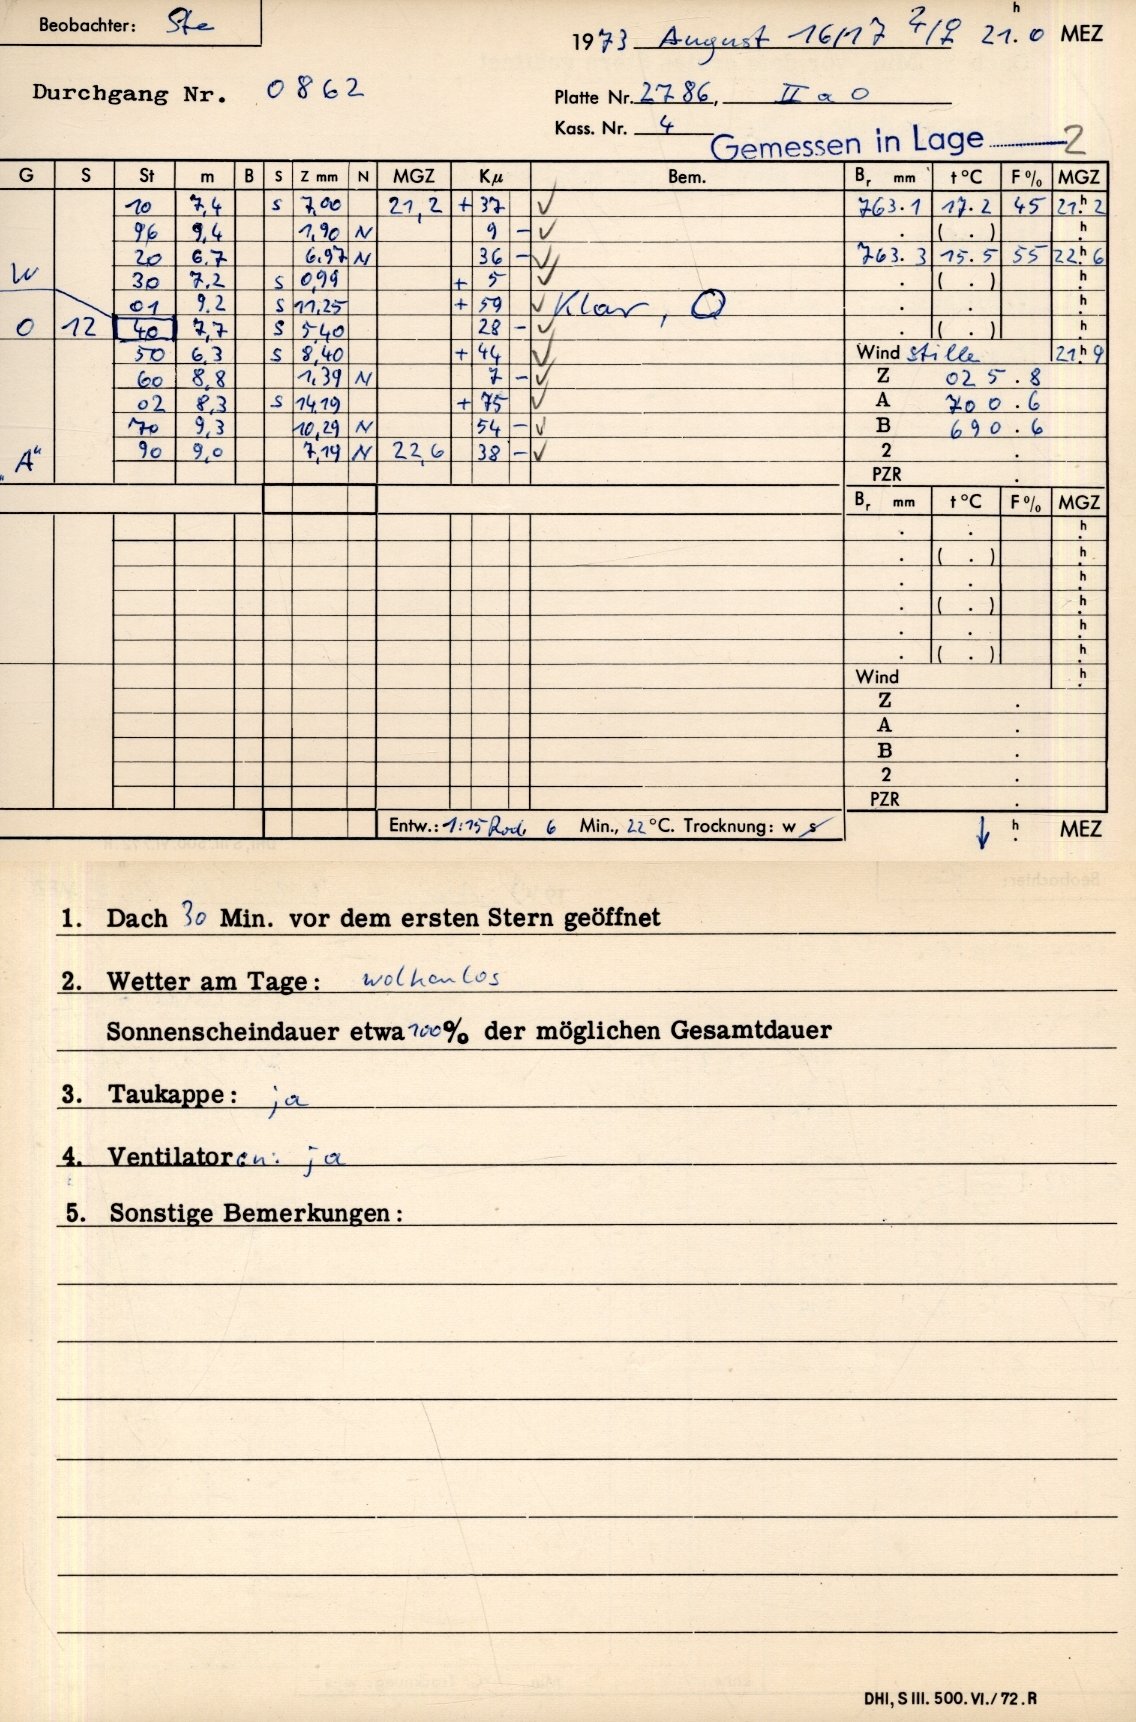 Beobachter: Ste
1973 August 16/17 21.0 h MEZ
Durchgang Nr. 0862
Platte Nr. 2786, II a O
Kass. Nr. 4
Gemessen in Lage 2
G S St m B S Z mm N MGZ Kμ Bem. Br mm t °C F % MGZ
10 7,4 s 7,00 21,2 + 37 ✓ 763.1 17.2 45 21h 2
96 9,4 1,90 N 9 – ✓ . ( . ) h
20 6,7 6,97 N 36 – ✓ 763.3 15.5 55 22h 6
W 30 7,2 s 0,99 + 5 ✓ . ( . ) h
01 9,2 s 11,25 + 59 ✓ Klar, O . . h
O 12 40 7,7 s 5,40 28 – ✓ . ( . ) h
50 6,3 s 8,40 + 44 ✓ Wind stille 21h 9
60 8,8 1,39 N 7 – ✓ Z 025.8
02 8,3 s 14,19 + 75 ✓ A 700.6
70 9,3 10,29 N 54 – ✓ B 690.6
"A" 90 9,0 7,19 N 22,6 38 – ✓ 2 .
PZR .
Br mm t °C F % MGZ
. . h
. ( . ) h
. . h
. ( . ) h
. . h
. ( . ) h
Wind h
Z .
A .
B .
2 .
PZR .
Entw.: 1:15 Rod. 6 Min., 22 °C. Trocknung: w s ↓ h MEZ
1. Dach 30 Min. vor dem ersten Stern geöffnet
2. Wetter am Tage: wolkenlos
Sonnenscheindauer etwa 100% der möglichen Gesamtdauer
3. Taukappe: ja
4. Ventilatoren: ja
5. Sonstige Bemerkungen:
DHI, S III. 500. VI./72. R